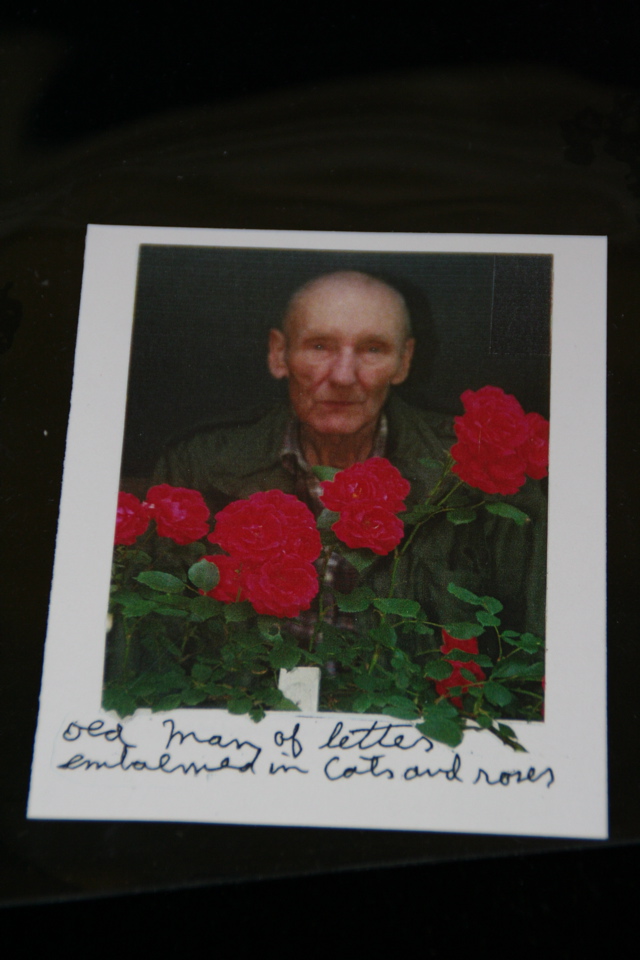 old man of lettes
embalmed in Cats and roses